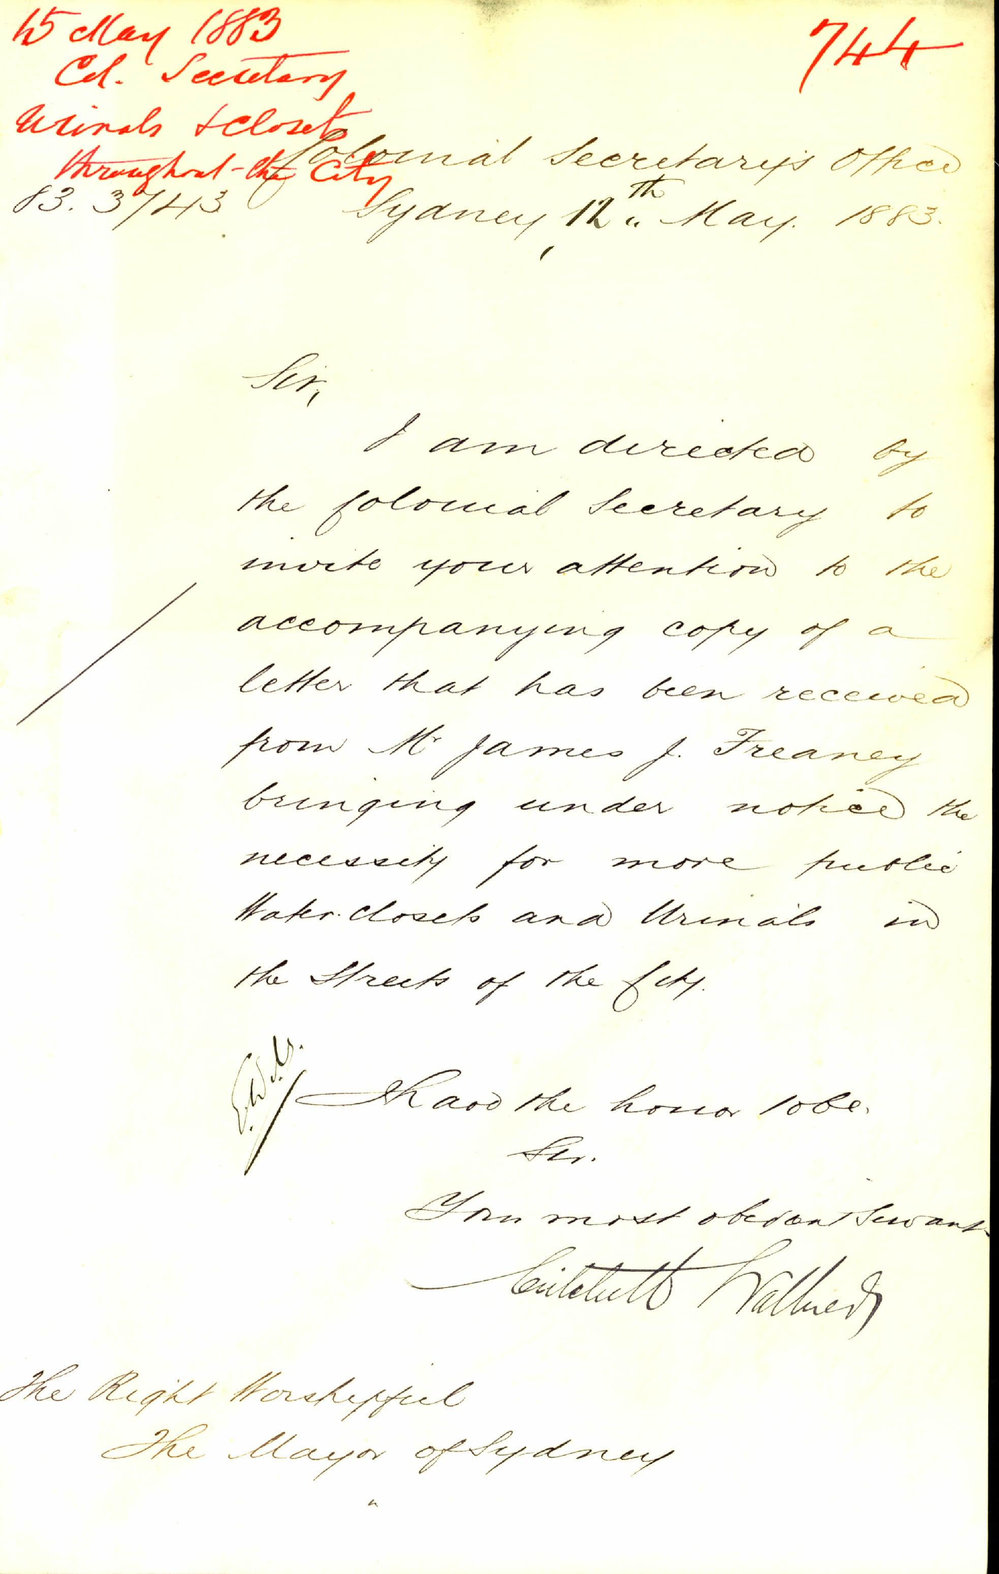 15 May 1883
Col. Secretary
Urinals & Closets
throughout the City
744
Colonial Secretary's Office
83.3743
Sydney, 12th May. 1883.
Sir,
I am directed by
the Colonial Secretary to
invite your attention to the
accompanying copy of a
letter that has been received
from Mr James J. Freaney
bringing under notice the
necessity for more public
Water-closets and Urinals in
the Streets of the City.
I have the honor to be.
Sir.
Your most obedient Servant
Critchett Walker
The Right Worshipful
The Mayor of Sydney